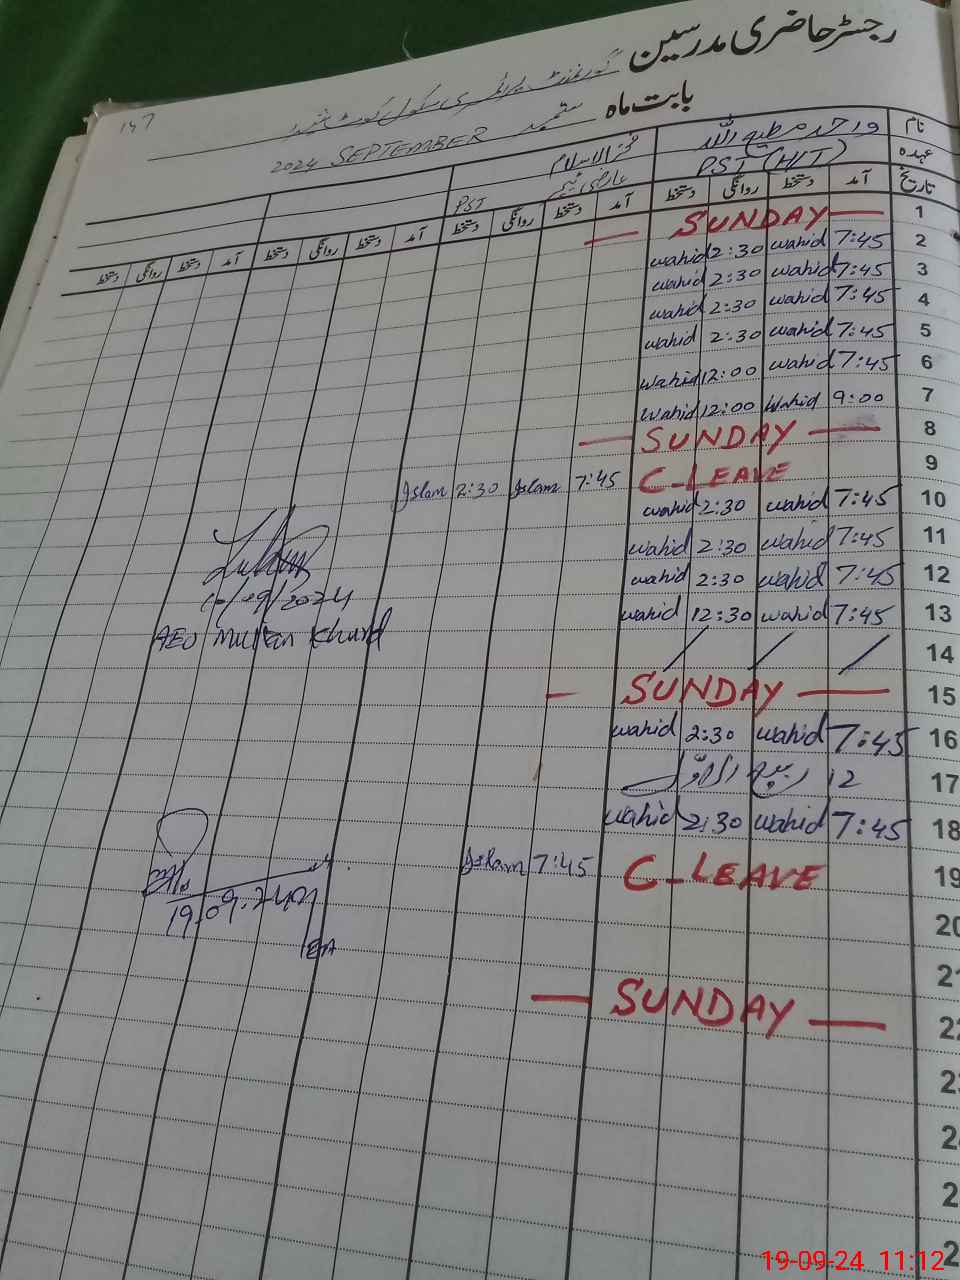 رجسٹر حاضری مدرسین
گورنمنٹ پرائمری سکول کوٹ
147
بابت ماہ ستمبر 2024 SEPTEMBER
نام واحد مطیع اللہ فخر الاسلام
عہدہ PST (H/T) عارضی ٹیچر PST
تاریخ آمد دستخط روانگی دستخط آمد دستخط روانگی دستخط آمد دستخط روانگی دستخط آمد دستخط روانگی دستخط
1 — SUNDAY —
2 7:45 wahid 2:30 wahid
3 7:45 wahid 2:30 wahid
4 7:45 wahid 2:30 wahid
5 7:45 wahid 2:30 wahid
6 7:45 wahid 12:00 wahid
7 9:00 Wahid 12:00 wahid
8 — SUNDAY —
9 C-LEAVE 7:45 Islam 2:30 Islam
10 7:45 wahid 2:30 wahid
11 7:45 wahid 2:30 wahid
12 7:45 wahid 2:30 wahid
13 7:45 wahid 12:30 wahid
10/09/2024
AEO Multan Khurd
14 / / /
15 — SUNDAY —
16 7:45 wahid 2:30 wahid
17 12 ربیع الاوّل
18 7:45 wahid 2:30 wahid
19 C-LEAVE 7:45 Islam
19.09.24
20
21
22 — SUNDAY —
19-09-24 11:12